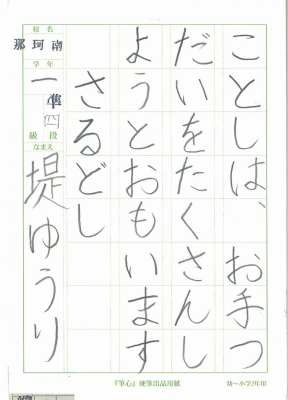 ことしは、お手つ
だいをたくさんし
ようとおもいます
さるどし
校名
南珂那
学年
一
準四
段
級
なまえ
堤ゆうり
『筆心』硬筆出品用紙
幼〜小学2年用